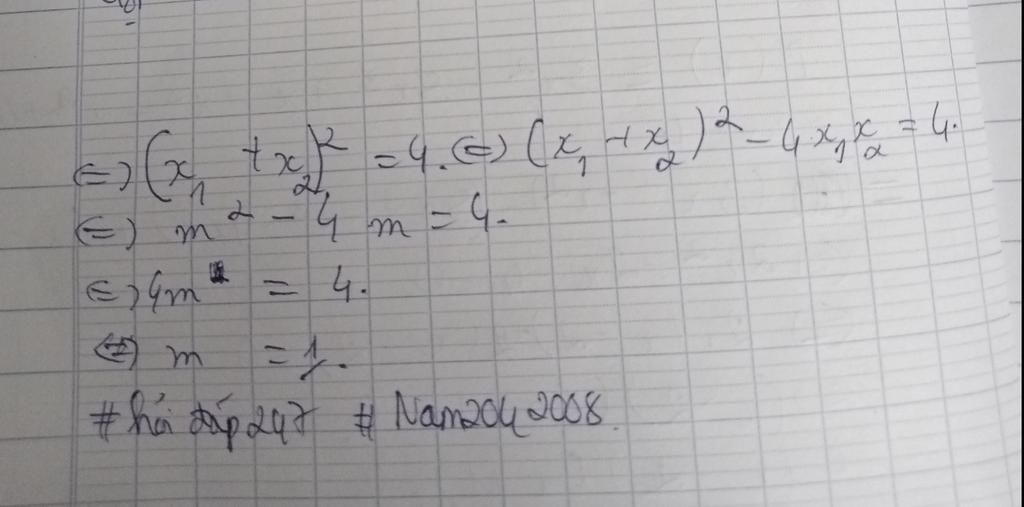 ⇔ (x₁ + x₂)² = 4. ⇔ (x₁ + x₂)² - 4x₁x₂ = 4.
⇔ m² - 4m = 4.
⇔ 4m = 4.
⇔ m = 1.
#hỏi đáp 247 # Nam2042008.